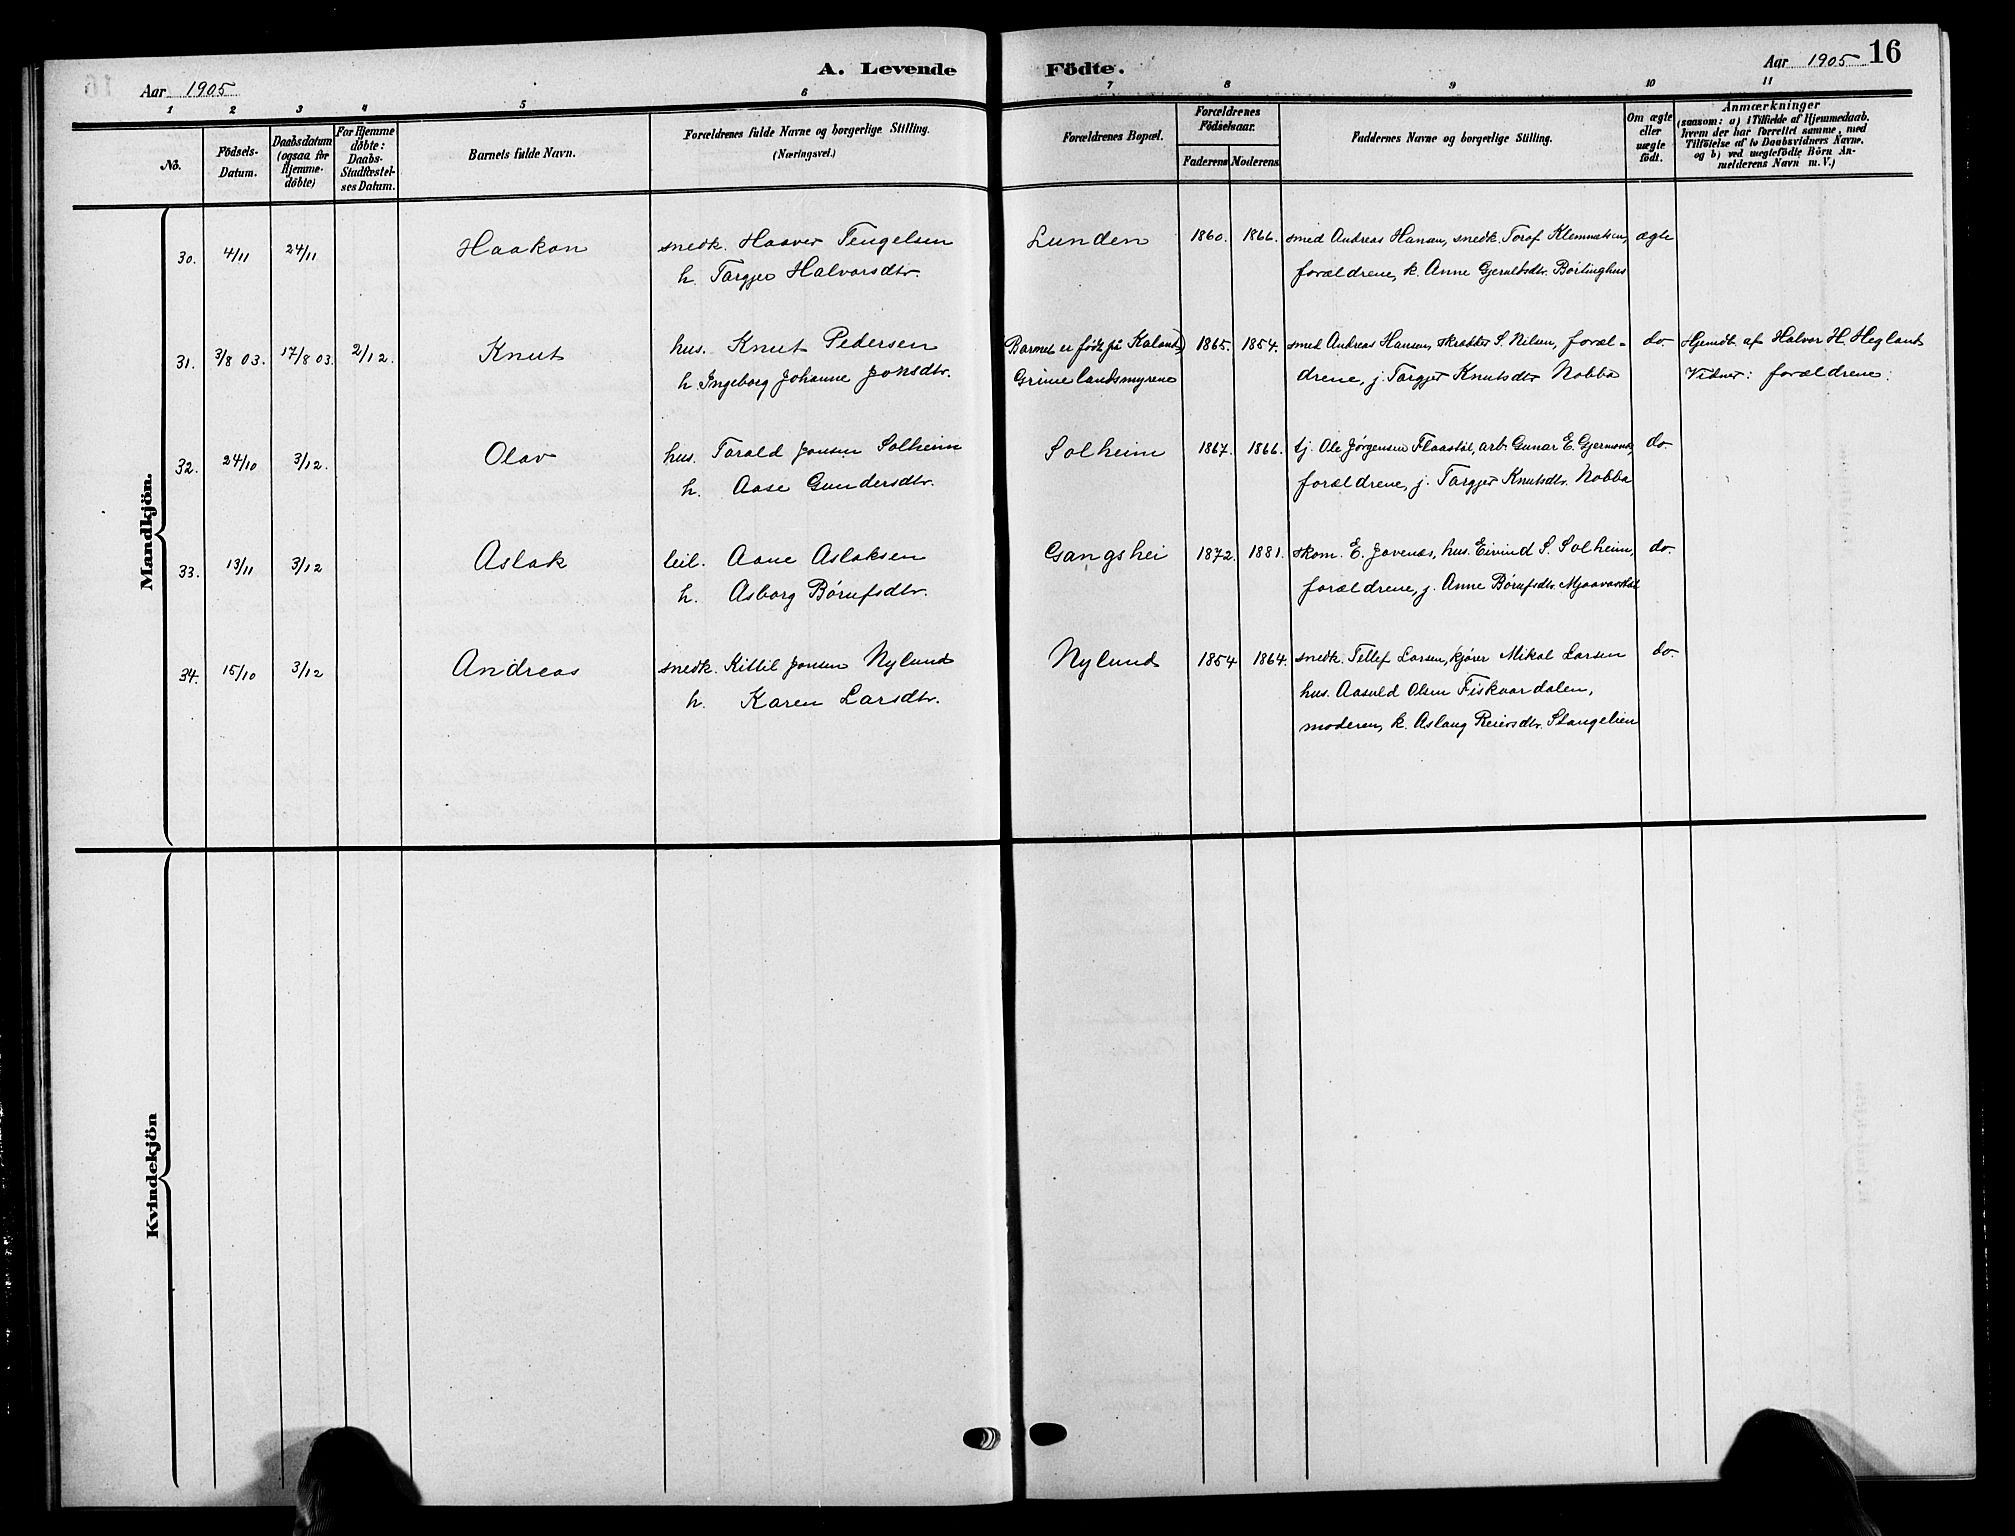 Aar 1905
A. Levende Födte.
Aar 1905
16
1 2 3 4 5 6 7 8 9 10 11
No.
Födsels-Datum.
Daabsdatum (ogsaa for Hjemme-döbte)
For Hjemme döbte: Daabs-Stadfæstel-ses Datum.
Barnets fulde Navn.
Forældrenes fulde Navne og borgerlige Stilling.
(Næringsvei.)
Forældrenes Bopæl.
Forældrenes Födselsaar.
Faderens Moderens
Faddernes Navne og borgerlige Stilling.
Om ægte eller uægte födt.
Anmærkninger
(saasom: a) i Tilfælde af Hjemmedaab.
hvem der har forrettet samme, med
Tilföielse af to Daabsvidners Navne,
og b) ved uægtefödte Börn An-
melderens Navn m. V.)
Mandkjön.
30. 4/11 24/11 Haakon snedk. Haaver Tengelsen Lunden 1860. 1866. smed Andreas Hansen, snedk. Torof Klemmetsen, ægte
h. Targjer Halvorsdtr. forældrene, k. Anne Gjeruldsdtr. Börtinghus
31. 3/8 03. 17/8 03. 2/12. Knut hus. Knut Pedersen (Barnet er født på Kaland) 1865. 1854. smed Andreas Hansen, skrædder S. Nilsen, foræl- do. Hjemdt. af Halvor H. Hegland
h. Ingeborg Johanne Jonsdtr. Grimelandsmyrene drene, j. Targjer Knutsdtr Nobba Vidner: forældrene.
32. 24/10 3/12. Olav hus. Tarald Jonsen Solheim Solheim 1867. 1866. tj. Ole Jørgensen Flaastøl, arb. Gunar E. Gjermunds, do.
h. Aase Gundersdtr. forældrene, j. Targjer Knutsdtr. Nobba
33. 13/11 3/12 Aslak leil. Aane Aslaksen Gangshei 1872. 1881. skom. E. Jovenæs, hus. Eivind S. Solheim, do.
h. Asborg Børufsdtr. forældrene, j. Anne Børufsdtr. Mjaavasstøl
34. 15/10 3/12 Andreas snedk. Kittil Jonsen Nylund Nylund 1854 1864. snedk. Tellef Larsen, kjører Mikal Larsen do.
h. Karen Larsdtr. hus. Aasuld Olsen Fiskvardalen,
moderen, k. Aslaug Reiersdtr. Stangelien
Kvindekjön